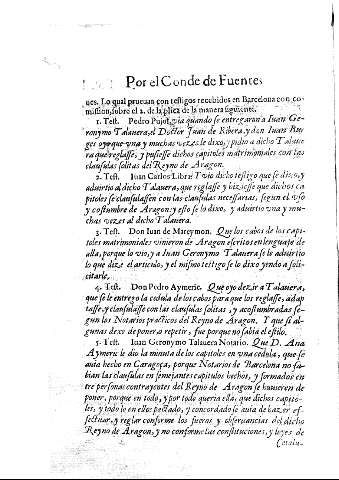 Por el Conde de Fuentes
ues. Lo qual prueuan con testigos recebidos en Barcelona con co-
mission, sobre el 2. de la plica de la manera siguiente.
1. Test. Pedro Pujol, via quando se entregaron a Iuan Ge-
ronymo Talauera, el Doctor Juan de Ribera, y don Iuan
ges oyo que vna y muchas vezes le dixo, y pidio a dicho Taluue
ra que reglasse, y pusiesse dichos capitoles matrimoniales con las
clausulas solitas del Reyno de Aragon.
2. Test. Iuan Carlos Libre. Y vio dicho testigo que se dixo, y
aduirtio al dicho Talauera, que reglasse y hiziesse que dichos ca
pitoles se clausulassen con las clausulas necessarias, segun el vso
y costumbre de Aragon: y esto se lo dixo, y aduirtio vna y mu-
chas vezes al dicho Talauera.
3. Test. Don Iuan de Mareymon. Que los cabos de los capi-
toles matrimoniales vinieron de Aragon escritos en lenguage de
alla, porque lo vio, y a Iuan Geronymo Talauera se lo aduirtio
lo que dize el articulo, y el mismo testigo se lo dixo yendo a soli-
citarle.
4. Test. Don Pedro Aymeric. Que oyo dezir a Talauera,
que se le entrego la cedula de los cabos para que los reglasse, adap
tasse, y clausulasse con las clausulas solitas, y acostumbradas se-
gun los Notarios practicos del Reyno de Aragon. Y que si al-
gunas dexo de poner a repetir, fue porque no sabia el estilo.
5. Test. Iuan Geronymo Talauera Notario. Que D. Ana
Aymeric le dio la minuta de los capitoles en vna cedula, que se
auia hecho en Caragoça, porque Notarios de Barcelona no sa-
bian las clausulas en semejantes capitoles hechos, y formados en
tre personas contrayentes del Reyno de Aragon se huuieren de
poner, porque en todo, y por todo queria ella, que dichos capito-
les, y todo lo en ellos pactado, y concordado se auia de hazer, ef-
fectuar, y reglar conforme los fueros y obseruancias del dicho
Reyno de Aragon, y no conforme las constituciones, y leyes de
Catalu-